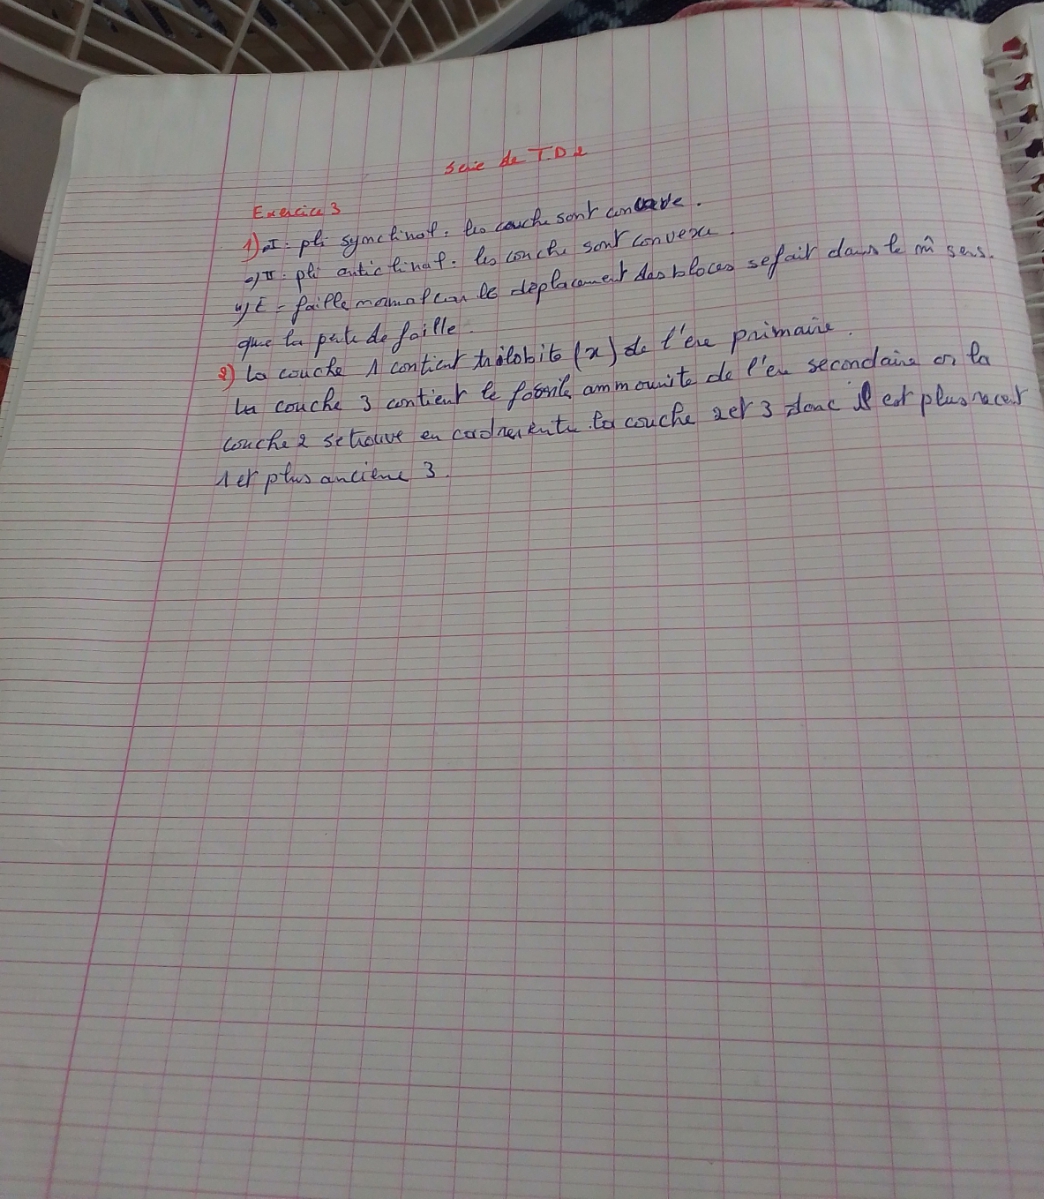 Serie de T.D 2
Exercice 3
1) I - pli synclinal. les couche sont concave.
II - pli anticlinal. les couche sont convexe.
F - faille normal car le deplacement des bloces se fait dans le m̂ sens.
que la pente de faille.
2) La couche 1 contient trilobite (x) de l'ere primaire.
la couche 3 contient le fossile ammonite de l'ere secondaire or la
couche 2 se trouve en la couche 2 et 3 donc il est plus recent
1 et plus anciene 3.